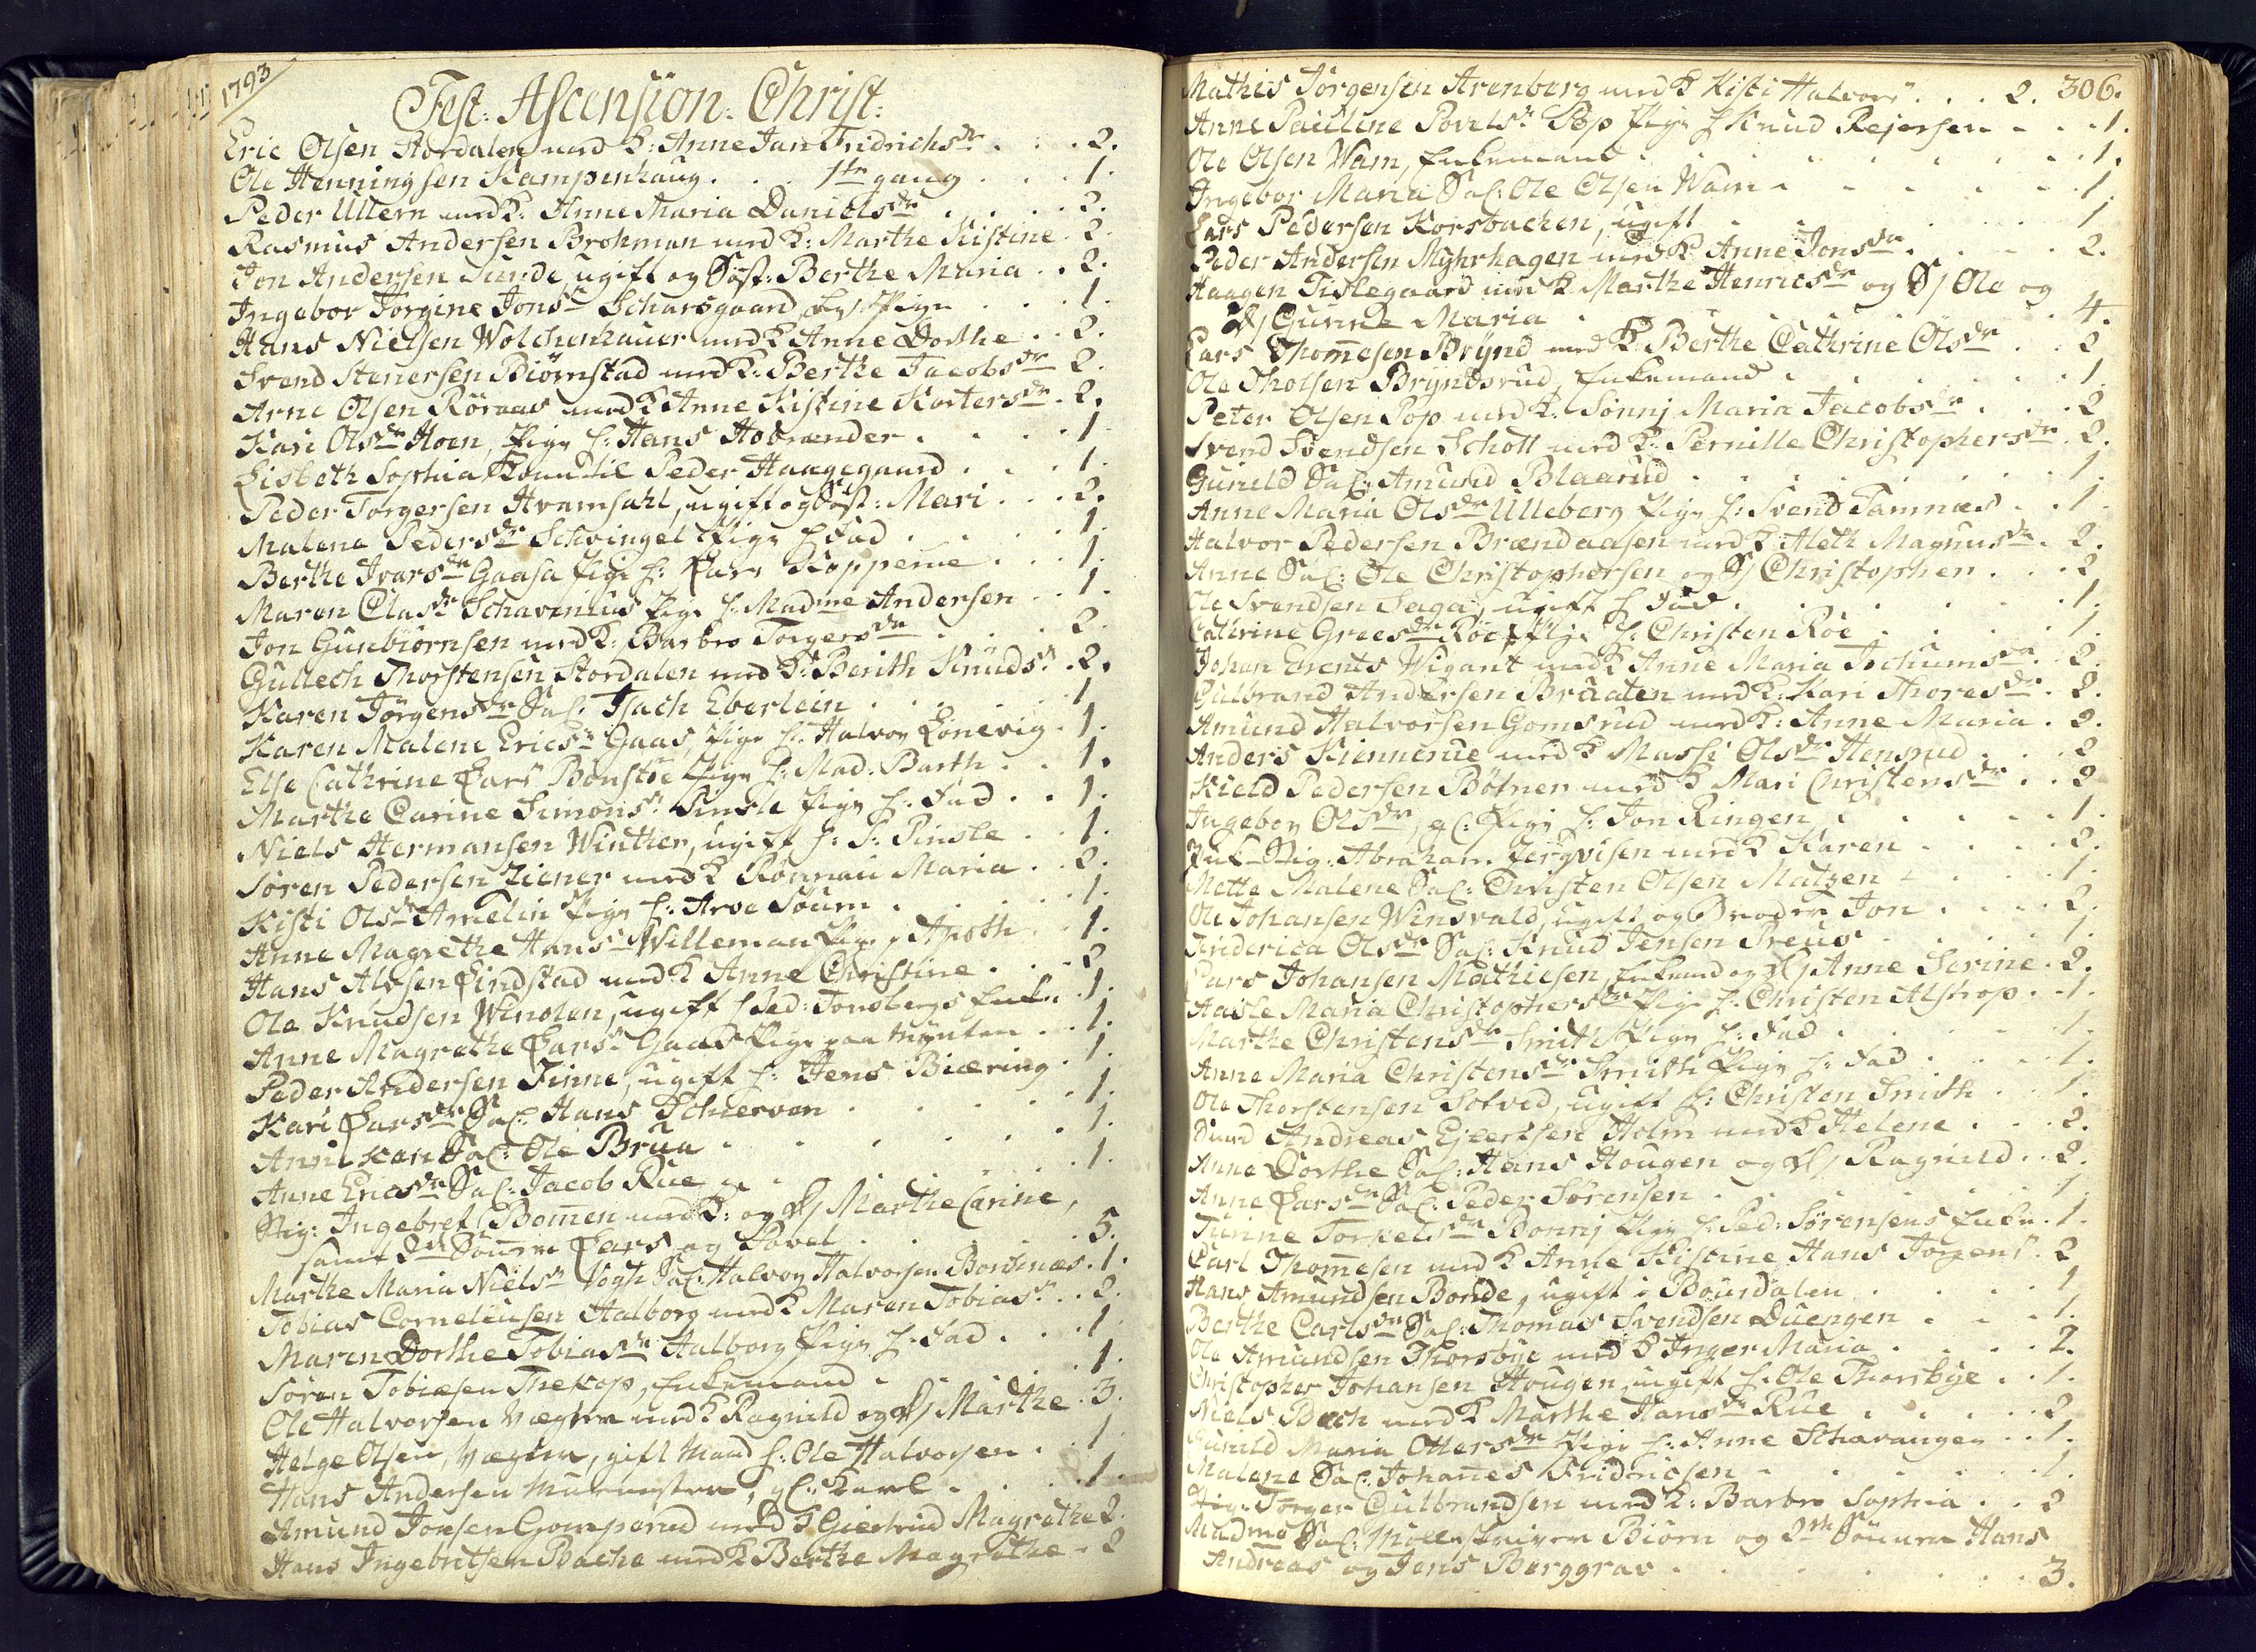 1793
Fest: Ascension: Christ:
Eric Olsen Stordalen med K: Anne Jan Fridrichsdr . . . 2.
Ole Henningsen Kampenhaug . . . 1ste gang . . . 1.
Peder Ullern med K: Anne Maria Danielsdr . . . 2.
Rasmus Andersen Brohman med K: Marthe Kistine . 2.
Jon Andersen Sunde, ugift og Søst: Berthe Maria . . 2.
Ingebor Jorgine Jonsdr Scharsgaard, Pige . . . 1.
Hans Nielsen Wolchenhauer med K Anne Dorthe . . 2.
Svend Stenersen Biørnstad med K: Berthe Jacobsdr 2.
Arne Olsen Röraas med K Anne Kistine Kortersdr . 2.
Kari Olsdr Hoen, Pige h: Hans Hobrænder . . . 1.
Lisbeth Sophia Peder Haagegaard . . . 1.
Peder Torgersen Hvamsahl, ugift og Søst: Mari . . . 2.
Malena Pedersdr Schvingel Pige h Fad . . . 1.
Berthe Ivarsdr Gaasa Pige h: Lars Kopperne . . . 1.
Maren Clasdr Schavenius Pige h: Madme Andersen . . 1.
Jon Gunbiörnsen med K: Barbro Torgersdr . . . 2.
Gullech Thorstensen Stordalen med K: Berith Knudsdr . 2.
Karen Jörgensdr Sal. Isach Eberlein . . . 1.
Karen Malene Ericsdr Gaas, Pige h: Halvor Lönevig . 1.
Else Cathrine Larsdr Bonstöe Pige h: Mad: Barth . . 1.
Marthe Carine Simonsdr Pinsle Pige h: Fad . . 1.
Niels Hermansen Winther, ugift h: P: Pinsle . . 1.
Sören Pedersen Ziener med K Rönnau Maria . . 2.
Kisti Olsdr Amelin Pige h: Arve Soum . . . 1.
Anne Magrethe Hansdr Willeman Pige p Apoth . . 1.
Hans Alvsen Lindstad med K Anne Christine . . . 2
Ole Knudsen Winolen, ugift h Ped: Tonsbergs Enke . 1.
Anne Magrethe Larsdr Gaas Pige paa Mynten . . 1.
Peder Andersen Finne, ugift h: Jens Biæring . . 1.
Kari Larsdr Sal: Hans Schierven . . . 1.
Anne Kari Sal: Ole Brua . . . 1.
Anne Ericsdr Sal: Jacob Rue . . . 1.
Stig: Ingebret Bomen med K: og D/ Marthe Carine,
samt 2de Sönner Lars og Povel . . . 5.
Marthe Maria Nielsdr Vogt Sal: Halvor Halvorsen Bondenæs . 1.
Tobias Corneliusen Aalborg med K Maren Tobiasdr . . 2.
Maren Dorthe Tobiasdr Aalborg Pige h: Fad . . . 1.
Sören Tobiæsen Threkop, Enkemand . . . 1.
Ole Halvorsen Vægter med K Ragnild og D/ Marthe . 3.
Helge Olsen, Vægter, gift Mand h: Ole Halvorsen . . 1.
Hans Andersen Muurmester, gl: Karl . . . 1.
Amund Jonsen Gomperud med K Giertrud Magrethe 2.
Hans Ingebretsen Bache med K Berthe Magrethe . 2
306.
Mathis Jörgensen Arenberg med K Kisti Halvorsdr . . . 2.
Anne Pauline Povelsdr Pop Pige h Knud Rejersen . . . 1.
Ole Olsen Wam, Enkemand . . . 1.
Ingebor Maria Sal: Ole Olsen Wam . . . 1.
Lars Pedersen Korsbachen, ugift . . . 1
Peder Andersen Myhrhagen med K Anne Jonsdr . . . 2.
Haagen Tislegaard med K Marthe Henricsdr og S/ Ole og
D/ Gunne Maria . . . 4.
Lars Thomesen Brynd med K Berthe Cathrine Olsdr . . 2
Ole Tholsen Bryndsrud, Enkemand . . . 1.
Peter Olsen Pop med K: Sönnj Maria Jacobsdr . . . 2
Svend Svendsen Scholl med K: Pernille Christophersdr . 2.
Gunild Sal: Amund Blaarud . . . 1.
Anne Maria Olsdr Ulleberg Pige h: Svend Tamnæs . . 1.
Halvor Pedersen Brændaasen med K: Aleth Magnusdr . 2.
Anne Sal: Ole Christophersen og S/ Christophen . . . 2
Ole Svendsen Saga, ugift h Fad . . . 1.
Cathrine Greesdr Röe Pige h: Christen Röe . . . 1.
Johan Erents Wigant med K Anne Maria Jochumsdr . 2.
Gulbrand Andersen Braaten med K: Kari Thoresdr . 2.
Amund Halvorsen Gomsrud med K: Anne Maria . 2.
Anders Kiennerue med K Massi Olsdr Hensrud . . . 2
Kield Pedersen Böfner med K Mari Christensdr . . 2
Ingebor Olsdr, gl: Pige h: Jon Ringen . . . 1.
Stig: Abraham Jergvisen med K Karen . . . 2.
Mette Malene Sal: Christen Olsen Matzen . . . 1.
Ole Johansen Winsvald, ugift og Broder Jon . . . 2.
Friderica Olsdr Sal: Knud Jensen Preus . . . 1.
Lars Johansen Mathiesen, Enkemd og D/ Anne Serine . 2.
Aasle Maria Christophersdr Pige h: Christen Alstrop . . 1.
Marthe Christensdr Smith Pige h: Fad . . . 1.
Anne Maria Christensdr Smith Pige h: Fad . . . 1.
Ole Thorstensen Solved, ugift h: Christen Smith . . 1.
Andreas Ejlertsen Holm med K Helene . . . 2.
Anne Dorthe Sal: Hans Hougen og D/ Ragnild . . 2.
Anne Larsdr Sal: Peder Sörensen . . . 1.
Turine Torkelsdr Bonnj Pige h: Ped: Sörensens Enke . 1.
Carl Thomesen med K Anne Kistine Hans Jorgensdr . 2
Hans Amundsen Bonde, ugift i Bousdalen . . . 1
Berthe Carlsdr Sal: Thomas Svendsen Duengen . . . 1.
Ole Amundsen Thorsbye med K Inger Maria . . . 2.
Christopher Johansen Hougen, ugift h: Ole Thorsbye . . 1.
Niels Bach med K Marthe Hansdr Rue . . . 2
Gunild Maria Ottersdr Pige h: Anne Schavangen . . 1.
Malene Sal: Johanes Fridricsen . . . 1.
Stig: Torger Gulbrandsen med K: Barbro Sophia . . 2
Madme Sal: Biörn og 2de Sönner Hans
Andreas og Jens Berggrav . . . 3.